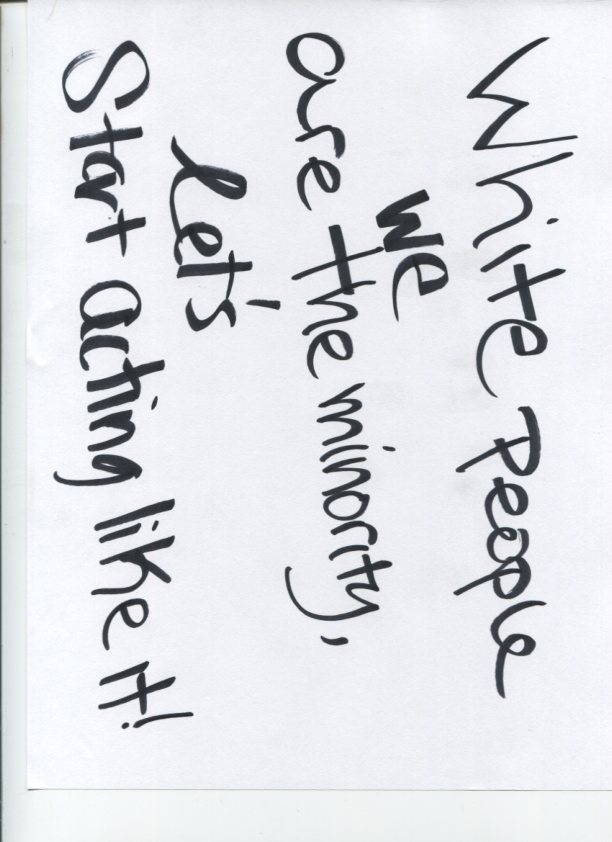 White People
we
are the minority,
let's
Start acting like it!